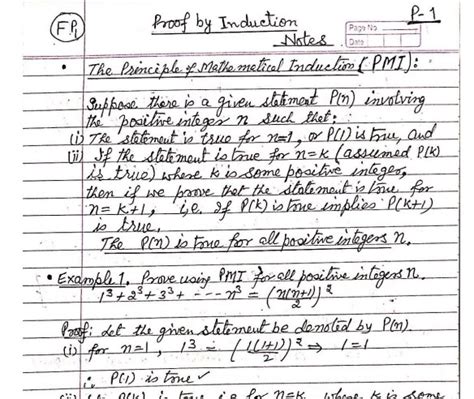 FP1
Proof by Induction
Notes
P-1
Page No
Date
• The Principle of Mathemetical Induction (PMI):
Suppose there is a given statement P(n) involving
the positive integer n such that:
(i) The statement is true for n=1, or P(1) is true, and
(ii) If the statement is true for n=k (assumed P(k)
is true) where k is some positive integer,
then if we prove that the statement is true for
n= k+1, i.e. If P(k) is true implies P(k+1)
is true.
The P(n) is true for all positive integers n.
• Example 1. Prove using PMI for all positive integers n.
1³+2³+3³+ ---- n³ = (n(n+1)/2)²
Proof: Let the given statement be denoted by P(n).
(i) for n=1, 1³ = (1(1+1)/2)² ⇒ 1=1
∴ P(1) is true ✓
(ii) Let P(k) is true i.e for n=k, where k is some